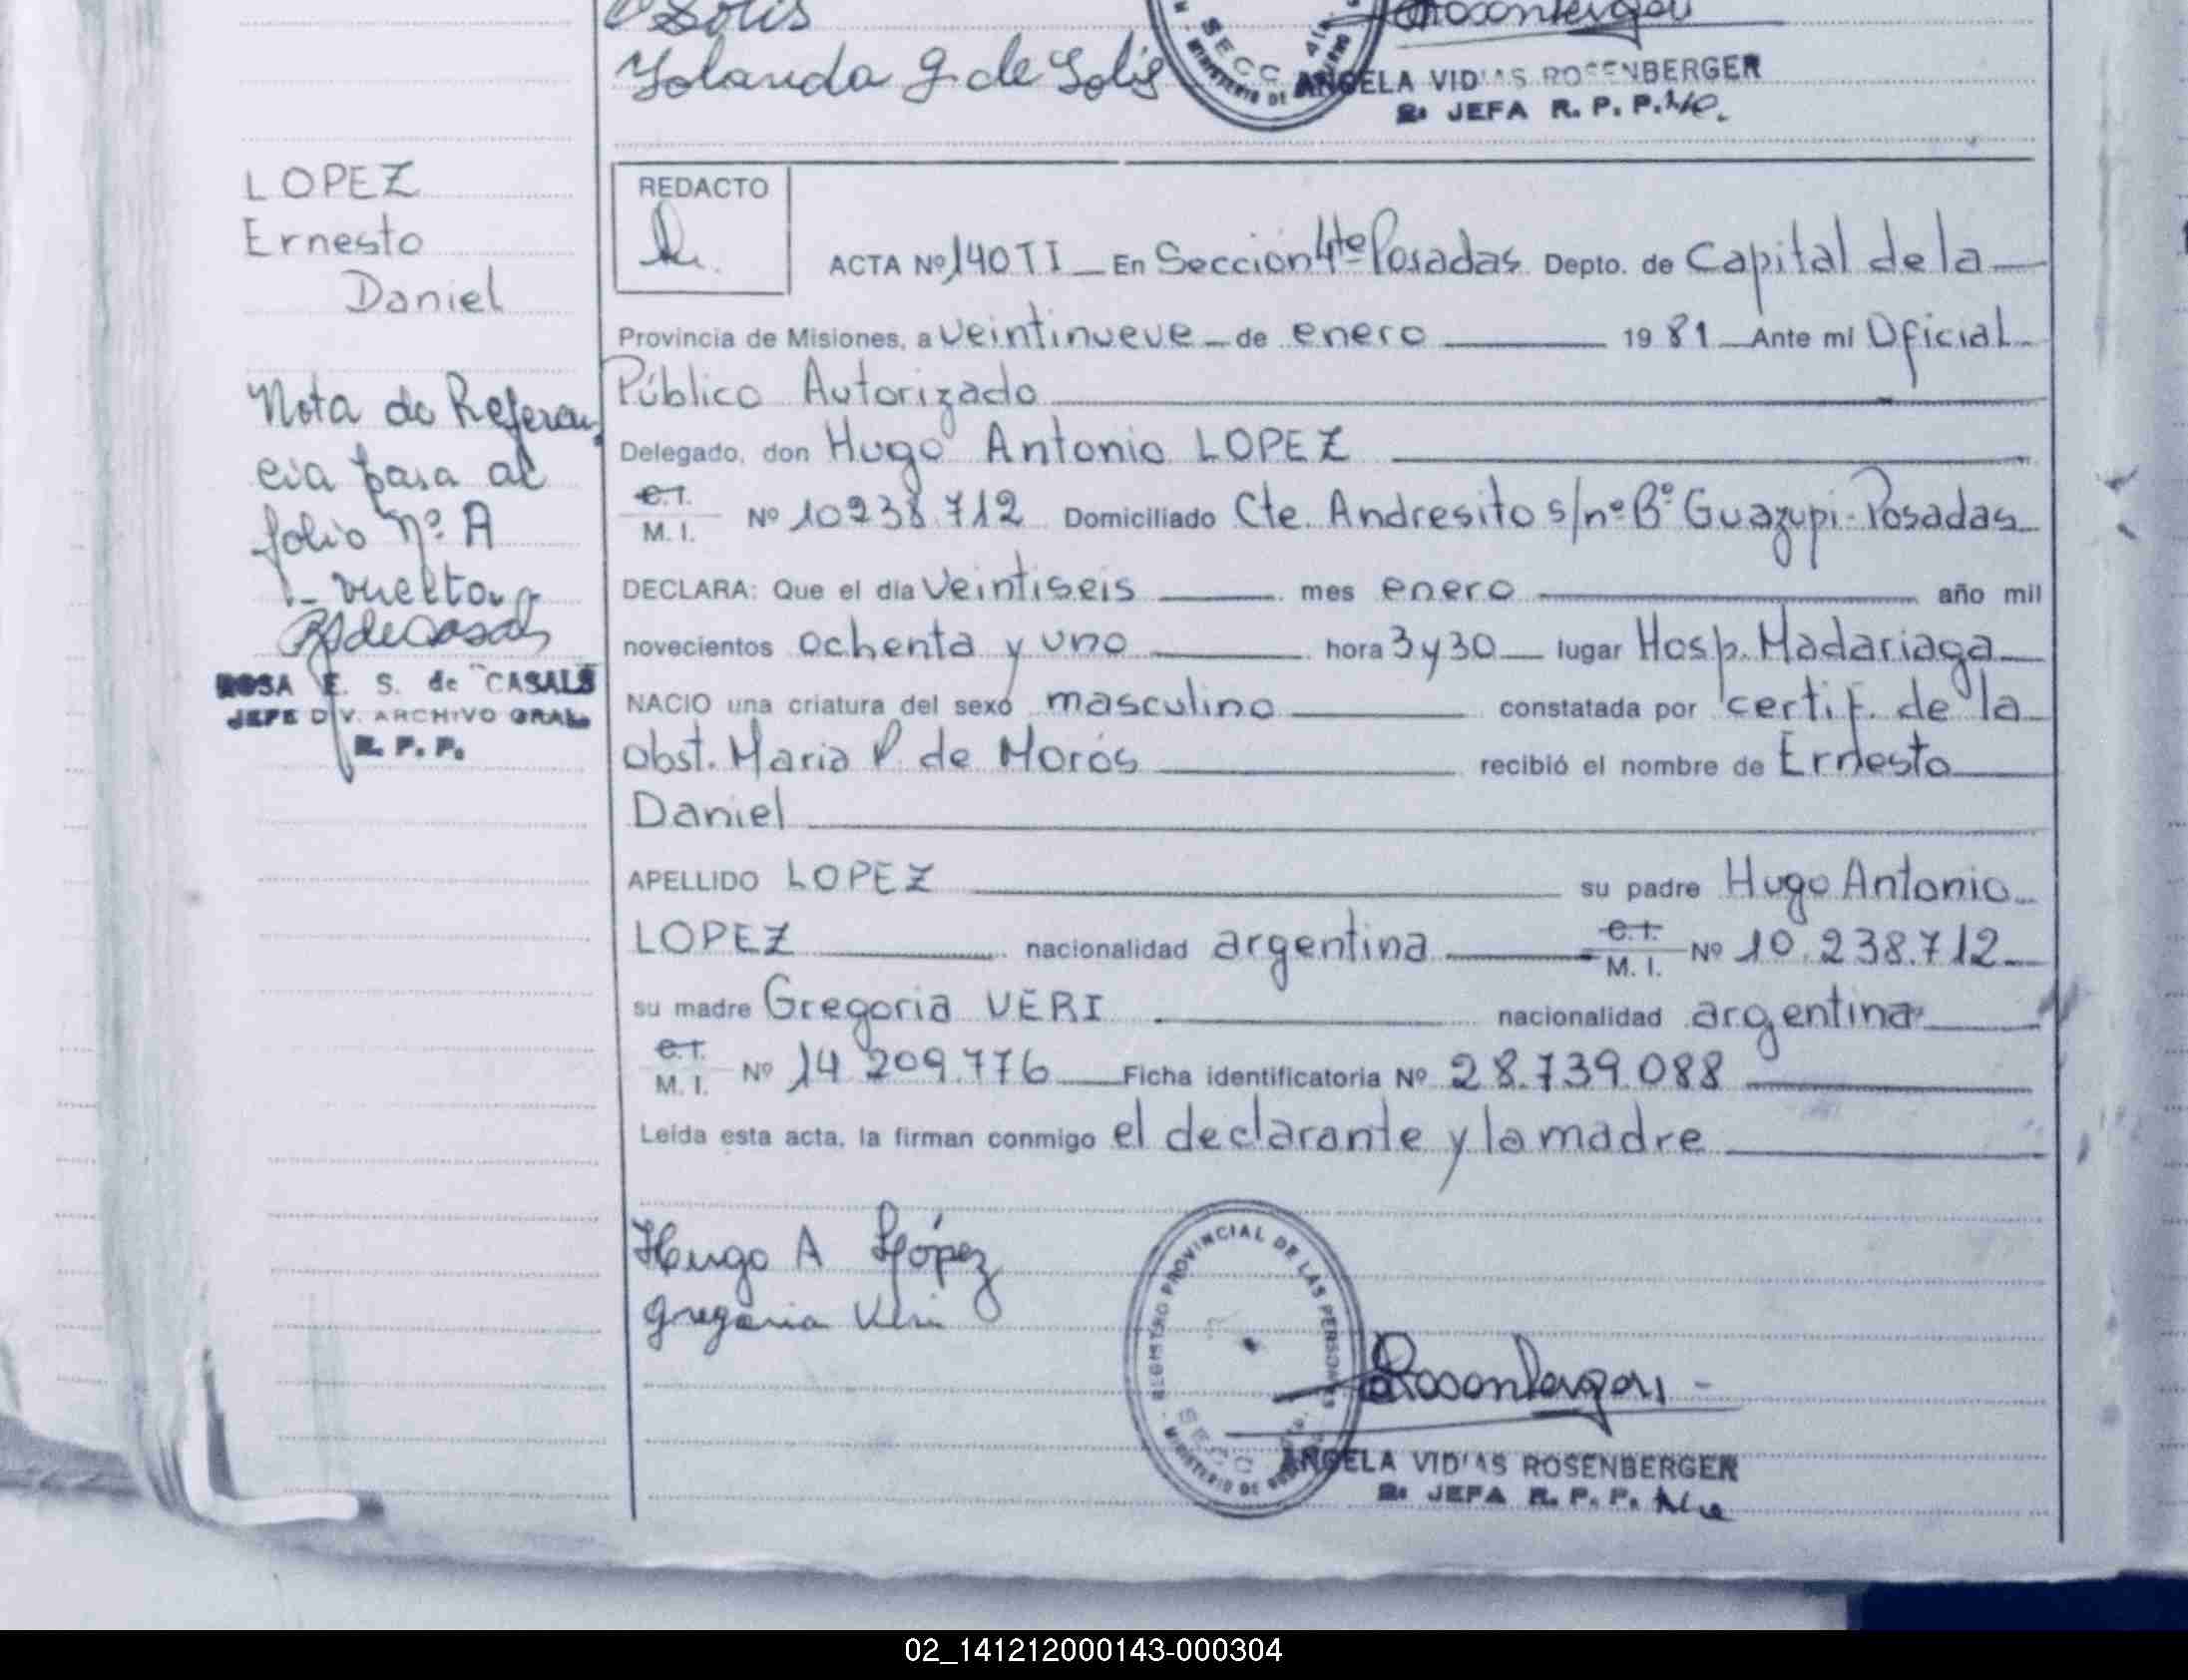 Solis
Yolanda G. de Solis
SECC
MINISTERIO DE
ANGELA VIDIAS ROSENBERGER
2a JEFA R. P. P.
LOPEZ
Ernesto
Daniel
Nota de Referen
cia pasa al
folio nº A
1- vuelta
ROSA E. S. de CASALS
JEFE DIV. ARCHIVO GRAL.
R. P. P.
REDACTO
ACTA Nº 140 TI En Sección 4te Posadas Depto. de Capital de la
Provincia de Misiones, a veintinueve de enero 1981 Ante mí Oficial
Público Autorizado
Delegado, don Hugo Antonio LOPEZ
C.I.
M. I. Nº 10238.712 Domiciliado Cte. Andresito s/nº Bº Guazupi-Posadas
DECLARA: Que el día Veintiseis mes enero año mil
novecientos ochenta y uno hora 3 y 30 lugar Hosp. Madariaga
NACIO una criatura del sexo masculino constatada por certif. de la
obst. Maria P. de Morós recibió el nombre de Ernesto
Daniel
APELLIDO LOPEZ su padre Hugo Antonio
LOPEZ nacionalidad argentina C.I. M. I. Nº 10.238.712
su madre Gregoria VERI nacionalidad argentina
C.I.
M. I. Nº 14 209.776 Ficha identificatoria Nº 28.739.088
Leída esta acta, la firman conmigo el declarante y la madre
Hugo A López
Gregoria Veri
REGISTRO PROVINCIAL DE LAS PERSONAS
SECC
MINISTERIO DE
Rosenberger
ANGELA VIDIAS ROSENBERGER
2a JEFA R. P. P.
02_141212000143-000304